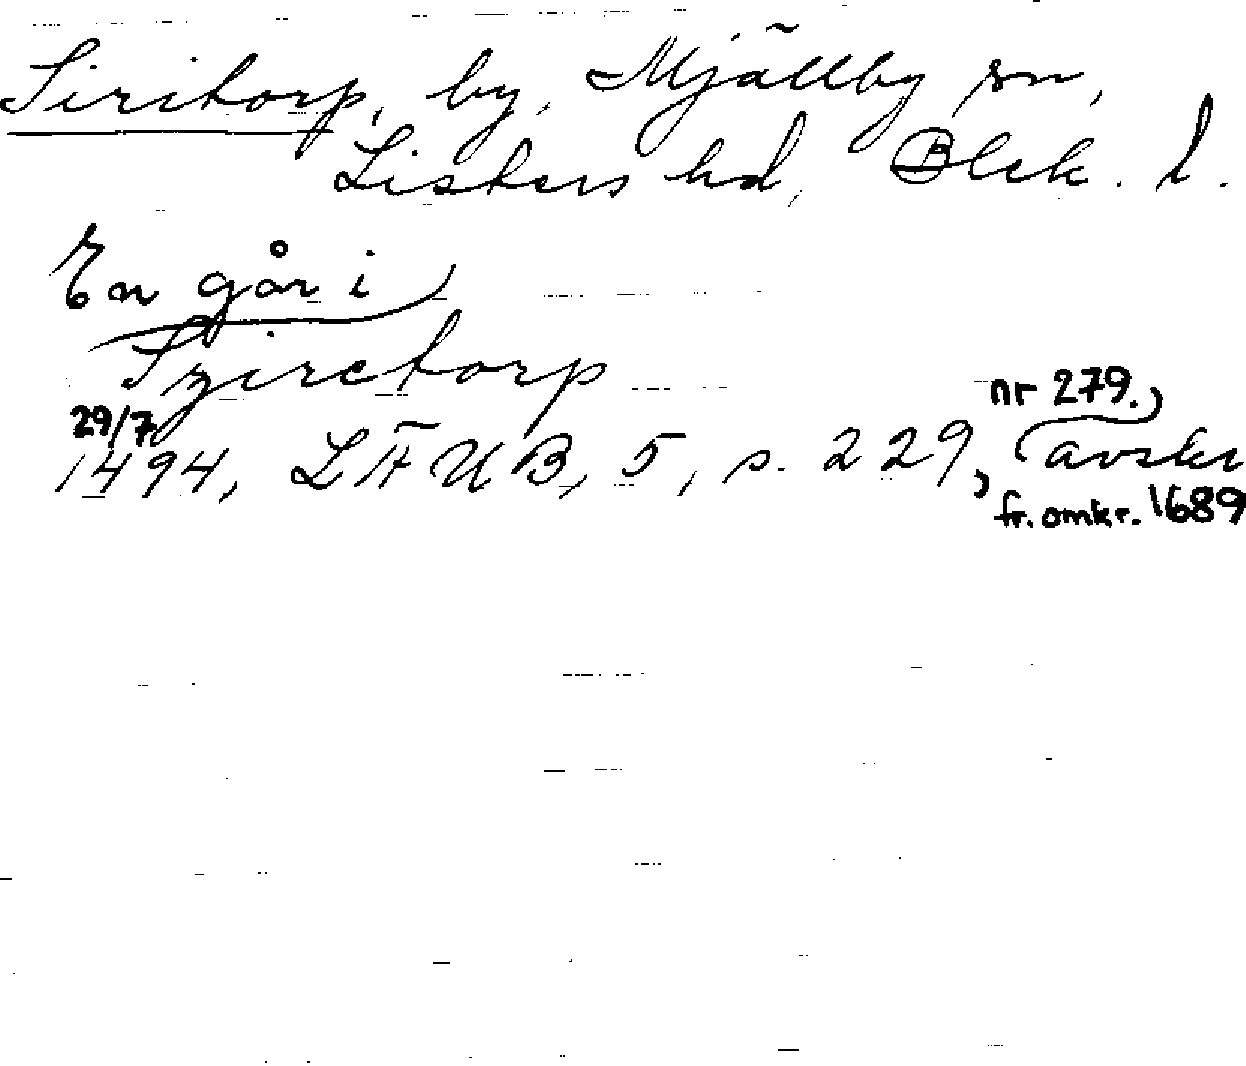 Siritorp, by, Mjällby sn,
Listers hd, Blek. l.
En går i
Sziretorp
29/7
1494, LÄUB, 5, s. 229, nr 279., avskr
fr. omkr. 1689